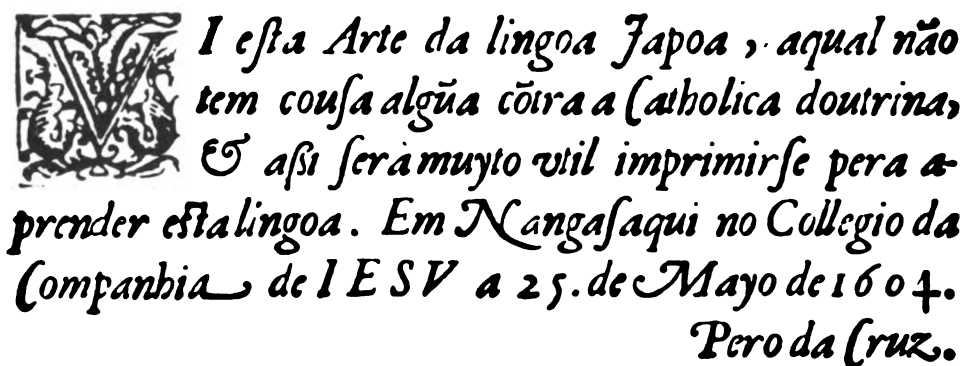 VI eſta Arte da lingoa Japoa, aqual não
tem couſa algũa cõtra a Catholica doutrina,
& aſsi ſerà muyto vtil imprimirſe pera a-
prender eſta lingoa. Em Nangaſaqui no Collegio da
Companhia de IESV a 25. de Mayo de 1604.
Pero da Cruz.